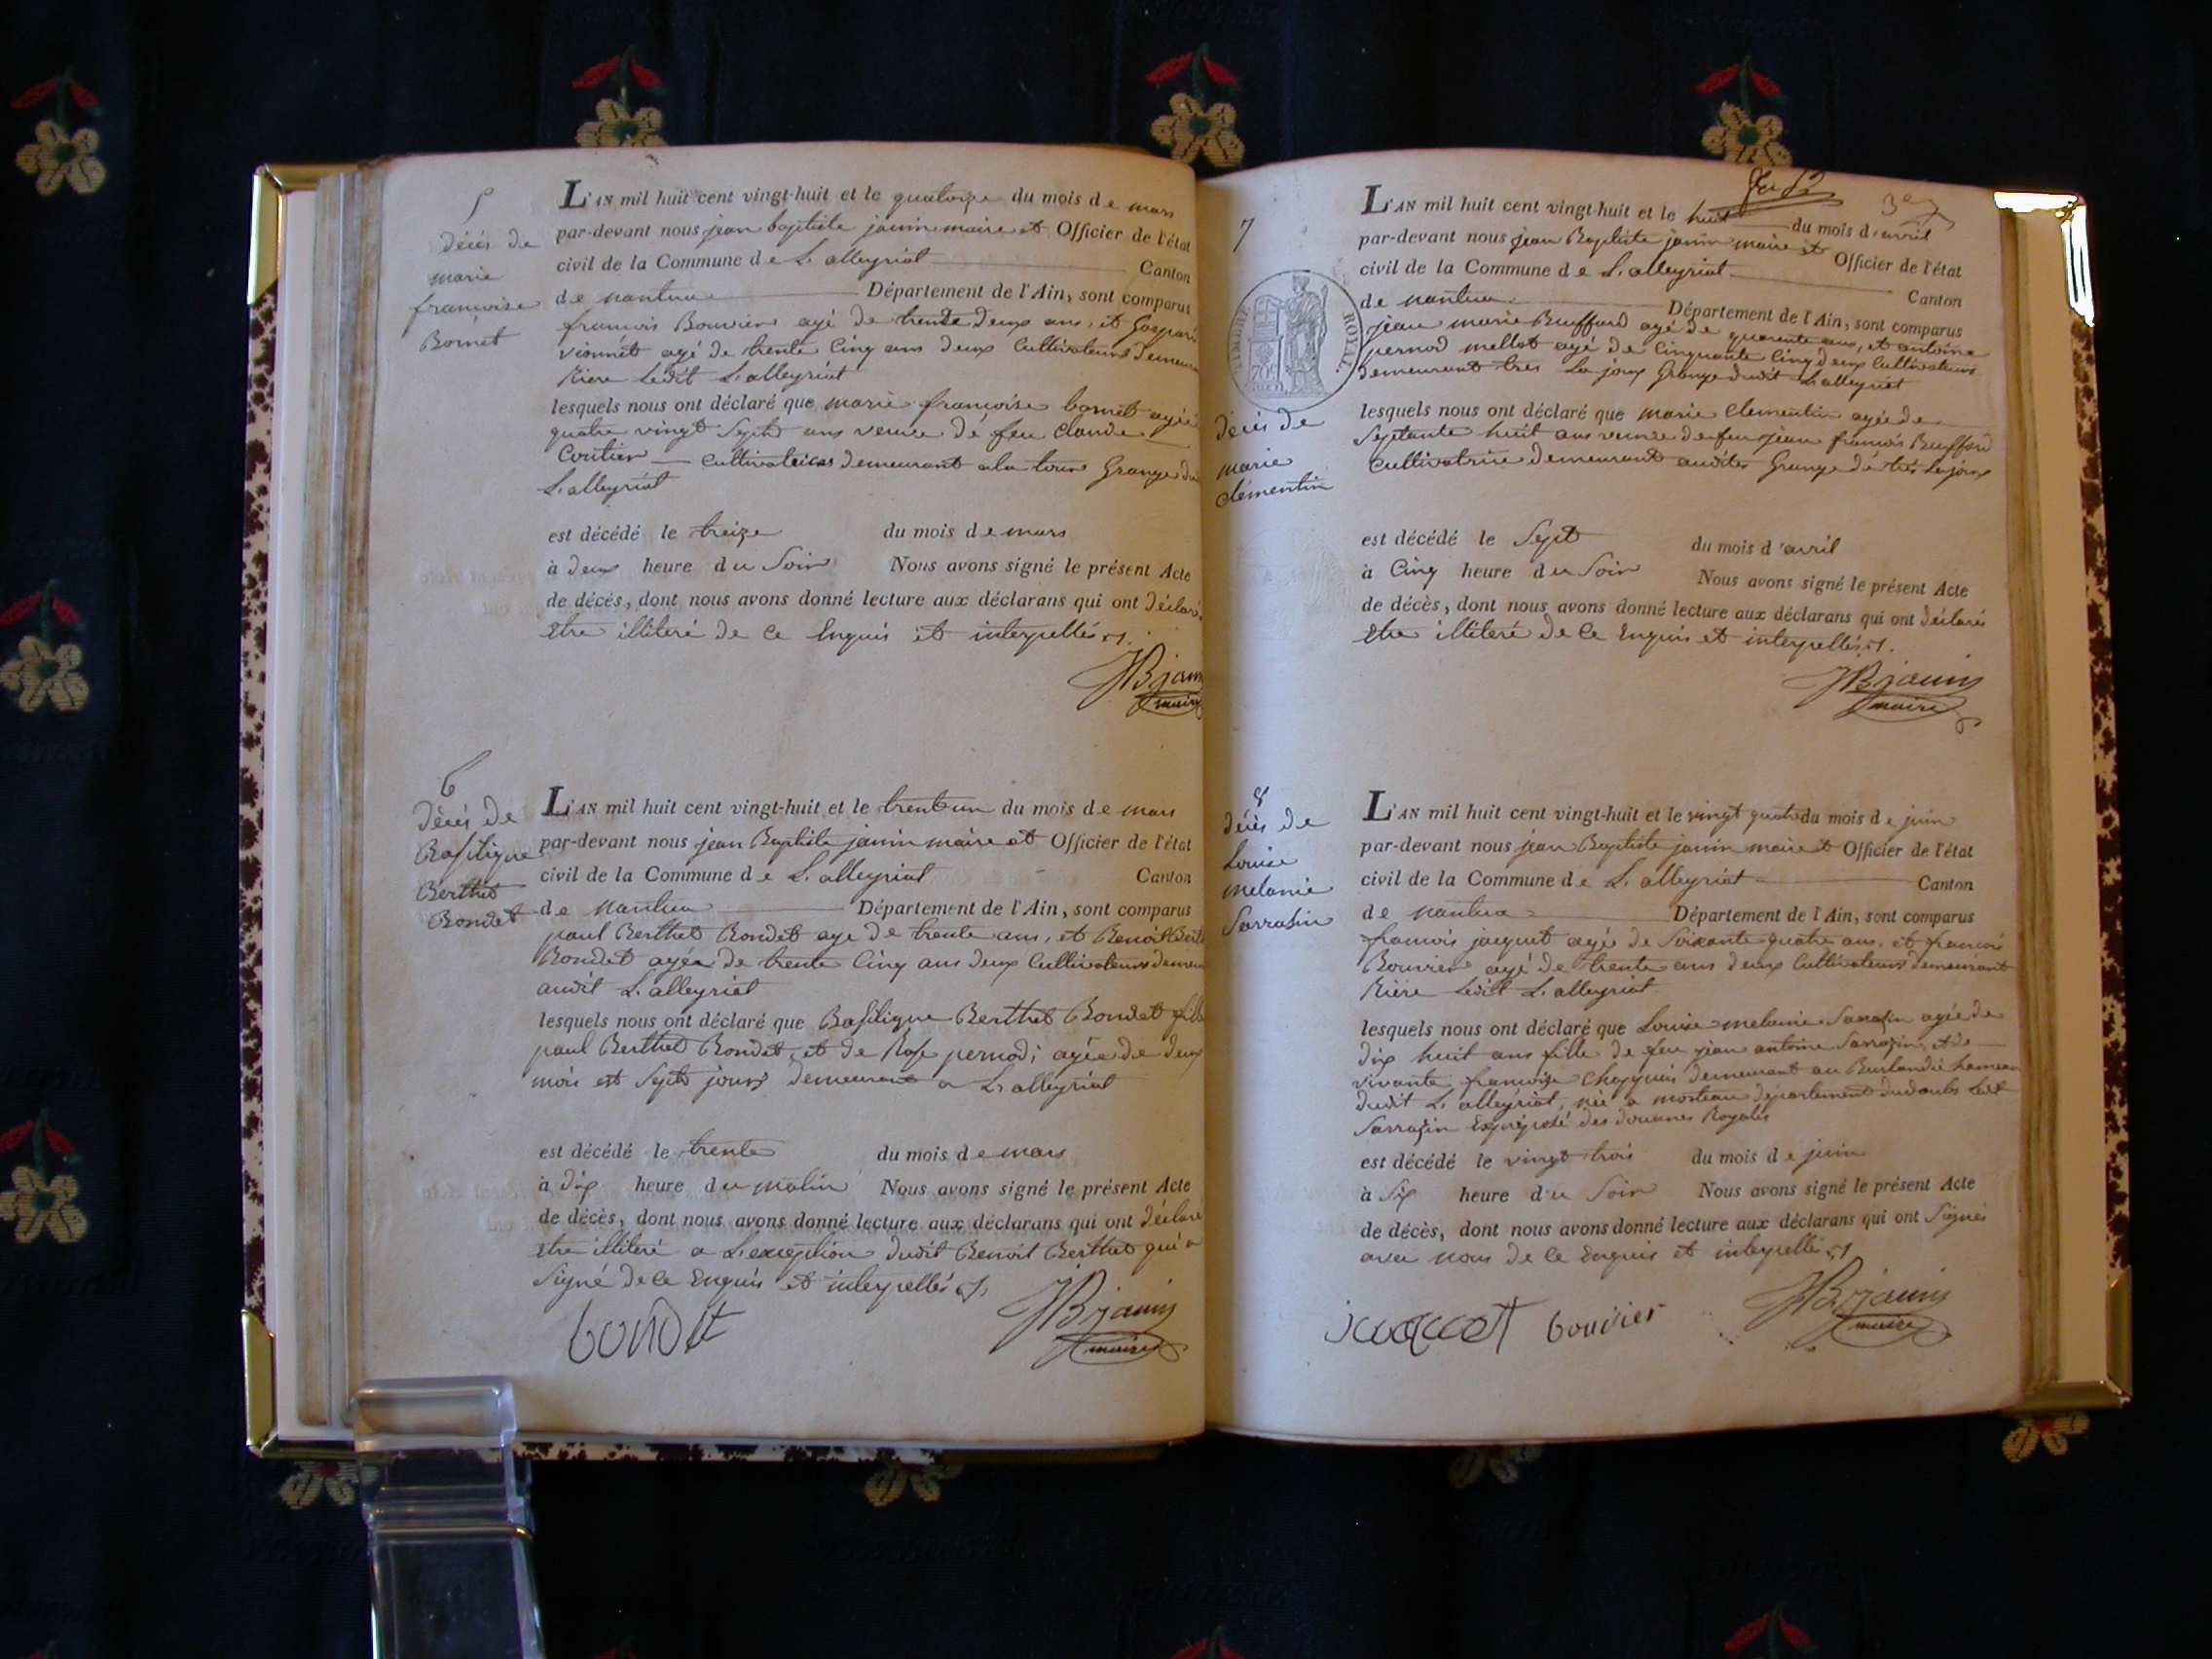 5
décés de
marie
francoise
Bornet
L'AN mil huit cent vingt-huit et le quatorze du mois de mars
par-devant nous jean baptiste janin maire et Officier de l'état
civil de la Commune de L. alleyriat Canton
de nantua Département de l'Ain, sont comparus
francois Bouvier agé de trente deux ans, et Gaspard
vionnet agé de trente Cinq ans deux Cultivateurs demeura
Riere Ledit L. alleyriat
lesquels nous ont déclaré que marie francoise bornet agée
quatre vingt Sept ans veuve de feu Claude
Coutier cultivatrices demeurant a la tour Grange du
L. alleyriat
est décédé le treize du mois de mars
à deux heure du Soir Nous avons signé le présent Acte
de décès, dont nous avons donné lecture aux déclarans qui ont déclaré
Etre illiteré de Ce Enquis et interpellés
JB janin
maire
6
décés de
Basilique
Berthet
Bondet
L'AN mil huit cent vingt-huit et le trente un du mois de mars
par-devant nous jean Baptiste janin maire et Officier de l'état
civil de la Commune de L. alleyriat Canton
de Nantua Département de l'Ain, sont comparus
paul Berthet Bondet age de trente ans, et Benoit Berth
Bondet agée de trente Cinq ans deux Cultivateurs demeu
audit L. alleyriat
lesquels nous ont déclaré que Basilique Berthet Bondet fille
paul Berthet Bondet, et de Rose pernod; agée de deux
mois et Sept jours demeurant a L. alleyriat
est décédé le trente du mois de mars
à dix heure du matin Nous avons signé le présent Acte
de décès, dont nous avons donné lecture aux déclarans qui ont déclaré
Etre illiteré a L'exception dudit Benoit Berthet qui a
Signé de Ce Enquis et interpellés
bondet
JB janin
maire
3e
7
TIMBRE ROYAL.
décés de
marie
clémentin
L'AN mil huit cent vingt-huit et le huit du mois d'avril
par-devant nous jean Baptiste janin maire et Officier de l'état
civil de la Commune de L. alleyriat Canton
de nantua Département de l'Ain, sont comparus
jean marie Buffard agé de quarente ans, et antoine
pernod mellot agé de Cinquante Cinq deux Cultivateurs
demeurant tres La joux Grange dudit L. alleyriat
lesquels nous ont déclaré que marie Clementin agée de
Septante huit ans veuve de feu jean francois Buffard
Cultivatrice demeurant audites Grange de trés La joux
est décédé le Sept du mois d'avril
à Cinq heure du Soir Nous avons signé le présent Acte
de décès, dont nous avons donné lecture aux déclarans qui ont déclarés
Etre illiteré de Ce Enquis et interpellés
JB janin
maire
8
décés de
Louise
melanie
Sarrasin
L'AN mil huit cent vingt-huit et le vingt quatre du mois de juin
par-devant nous jean Baptiste janin maire et Officier de l'état
civil de la Commune de L. alleyriat Canton
de nantua Département de l'Ain, sont comparus
francois jacquet agé de Soixante quatre ans, et francois
Bouvier agé de trente ans deux Cultivateurs demeurant
Riere Ledit L. alleyriat
lesquels nous ont déclaré que Louise melanie Sarrazin agée de
dix huit ans fille de feu jean antoine Sarrazin, et de
vivante francoise demeurant au Burlandie hameau
dudit L. alleyriat, née a morteau departement du doubs Ledt
Sarrazin Expréposé des douanes Royales
est décédé le vingt trois du mois de juin
à Six heure du Soir Nous avons signé le présent Acte
de décès, dont nous avons donné lecture aux déclarans qui ont Signés
avec nous de Ce Enquis et interpellé
jacquet bouvier
JB janin
maire